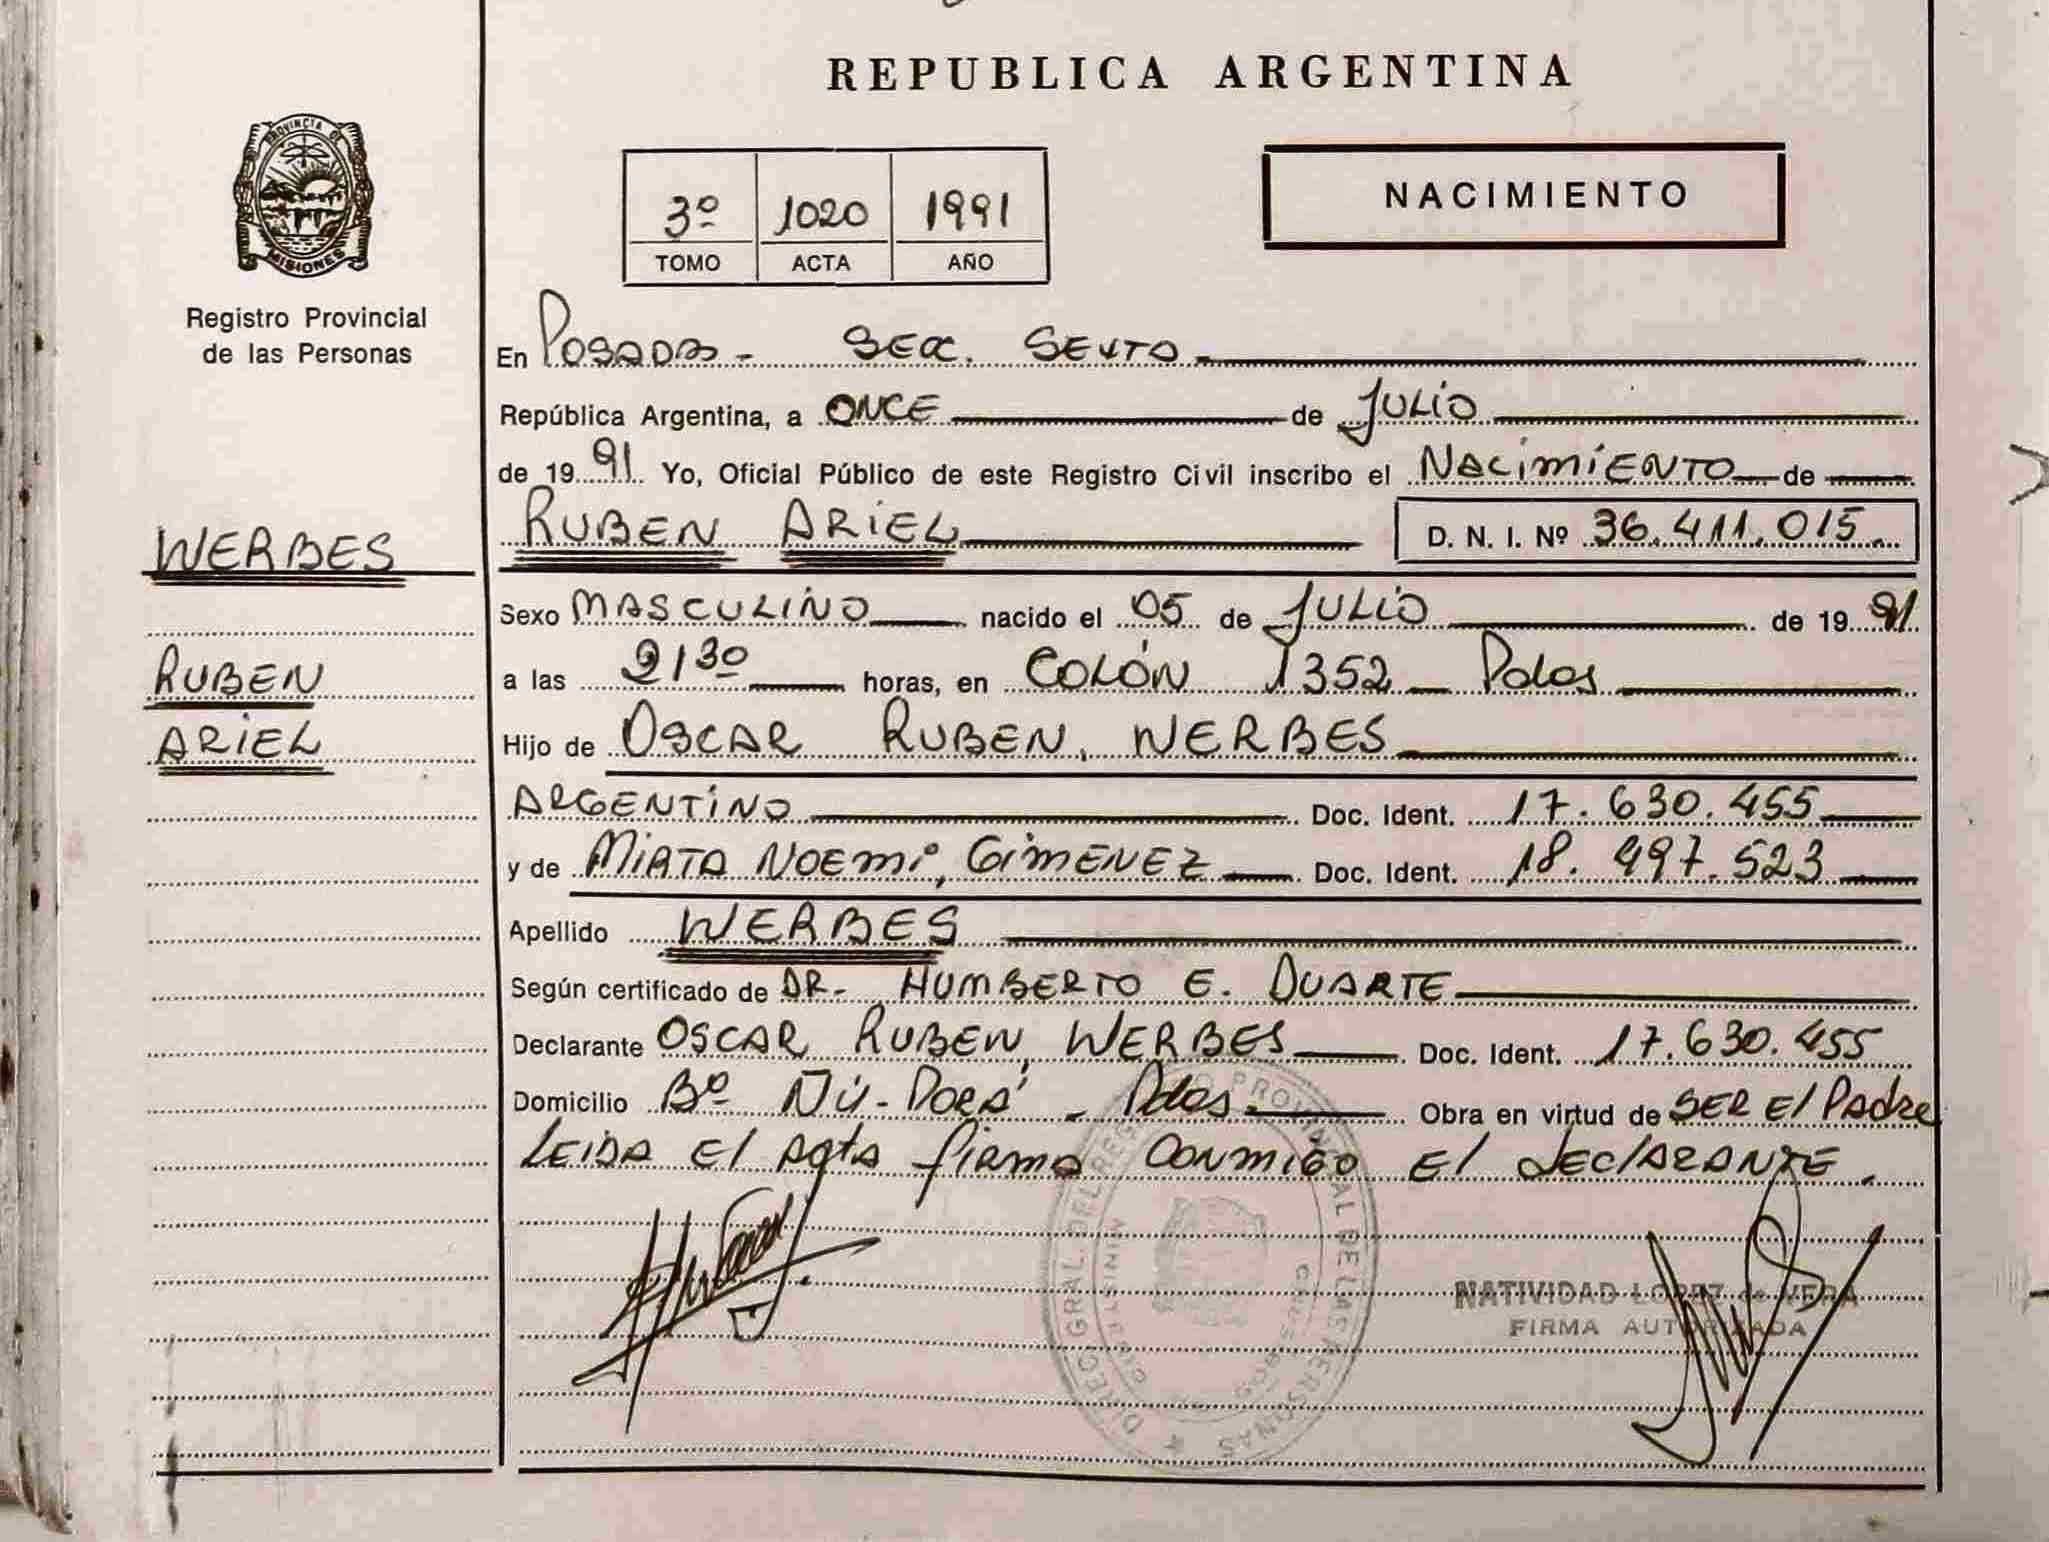 REPUBLICA ARGENTINA
PROVINCIA DE
MISIONES
Registro Provincial
de las Personas
3º 1020 1991
TOMO ACTA AÑO
NACIMIENTO
En Posadas - Secc. Sexta
República Argentina, a ONCE de JULIO
de 1991 Yo, Oficial Público de este Registro Civil inscribo el NACIMIENTO de
RUBEN ARIEL D. N. I. Nº 36.411.015
WERBES
RUBEN
ARIEL
Sexo MASCULINO nacido el 05 de JULIO de 1991
a las 2130 horas, en COLÓN 1352 - Pdas
Hijo de OSCAR RUBEN, WERBES
ARGENTINO Doc. Ident. 17.630.455
y de MIRTA NOEMI, GIMENEZ Doc. Ident. 18.497.523
Apellido WERBES
Según certificado de DR- HUMBERTO E. DUARTE
Declarante OSCAR RUBEN, WERBES Doc. Ident. 17.630.455
Domicilio Bº ÑU-PORÁ - Pdas- Obra en virtud de SER El Padre
LEIDA El Acta firma CONMIGO El declARANTE.
DIREC. GRAL. DEL REGISTRO PROVINCIAL DE LAS PERSONAS
NATIVIDAD LOPEZ de VERA
FIRMA AUTORIZADA